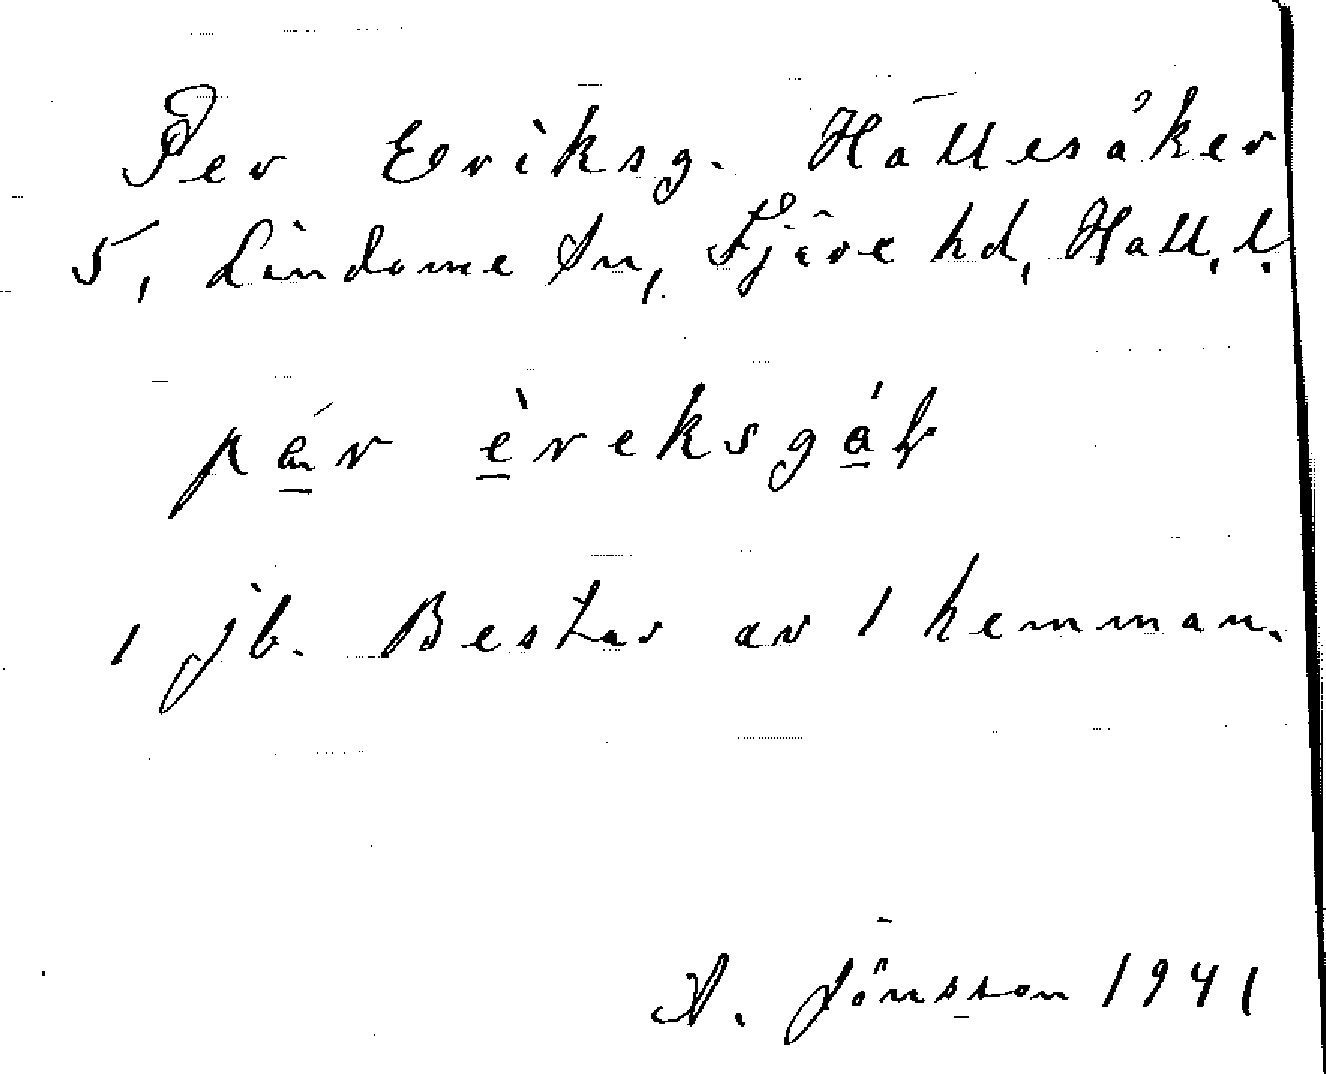 Per Eriksg. Hällesåker
5, Lindome sn, Fjäre hd, Hall. l.
pǽr èreksgáɫ
1 jb. Består av 1 hemman.
A. Jönsson 1941